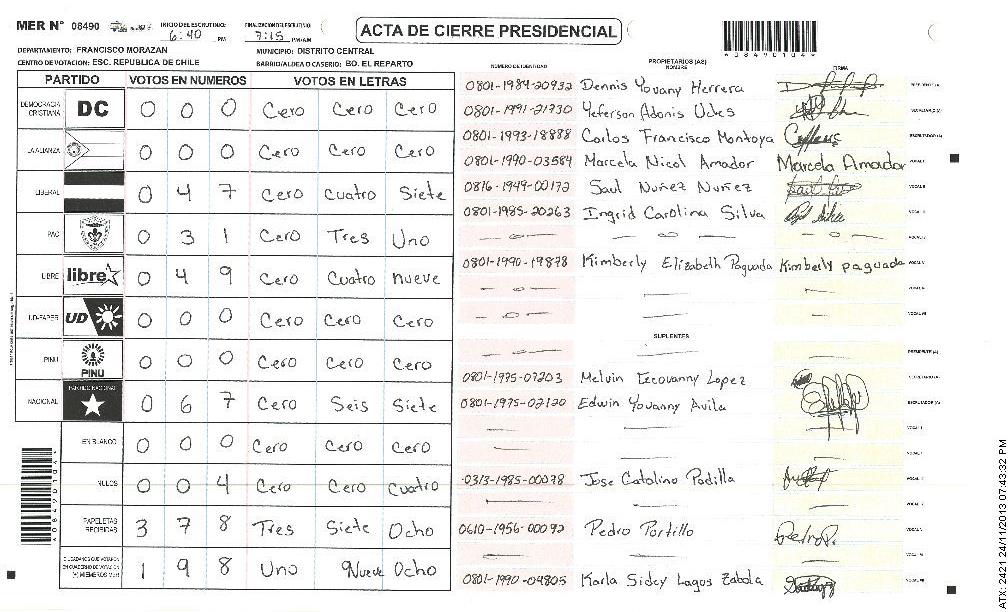 MER N° 08490 INICIO DEL ESCRUTINIO 6:40 PM FINALIZACION DEL ESCRUTINIO 7:15 PM/AM
ACTA DE CIERRE PRESIDENCIAL
DEPARTAMENTO: FRANCISCO MORAZAN MUNICIPIO: DISTRITO CENTRAL
CENTRO DE VOTACION: ESC. REPUBLICA DE CHILE BARRIO/ALDEA O CASERIO: BO. EL REPARTO
PARTIDO VOTOS EN NUMEROS VOTOS EN LETRAS
DEMOCRACIA CRISTIANA DC 0 0 0 Cero Cero Cero
LA ALIANZA 0 0 0 Cero Cero Cero
LIBERAL 0 4 7 Cero Cuatro Siete
PAC 0 3 1 Cero Tres Uno
LIBRE libre 0 4 9 Cero Cuatro nueve
UD-FAPER UD 0 0 0 Cero Cero Cero
PINU PINU 0 0 0 Cero Cero Cero
NACIONAL PARTIDO NACIONAL 0 6 7 Cero Seis Siete
EN BLANCO 0 0 0 Cero Cero Cero
NULOS 0 0 4 Cero Cero Cuatro
PAPELETAS RECIBIDAS 3 7 8 Tres Siete Ocho
CIUDADANOS QUE VOTARON EN CUADERNO DE VOTACION (+) MIEMBROS MER 1 9 8 Uno Nueve Ocho
NUMERO DE IDENTIDAD PROPIETARIOS (AS) NOMBRE FIRMA
0801-1984-20932 Dennis Yovany Herrera PRESIDENTE (A)
0801-1991-21730 Yeferson Adonis Udes SECRETARIO (A)
0801-1993-18888 Carlos Francisco Montoya ESCRUTADOR (A)
0801-1990-03584 Marcela Nicol Amador Marcela Amador VOCAL I
0816-1949-00172 Saul Nuñez Nuñez VOCAL II
0801-1985-20263 Ingrid Carolina Silva VOCAL III
0801-1996-19878 Kimberly Elizabeth Paguada Kimberly paguada VOCAL V
SUPLENTES
PRESIDENTE (A)
0801-1975-07203 Melvin Lopez SECRETARIO (A)
0801-1975-02120 Edwin Yovanny Avila ESCRUTADOR (A)
0313-1985-00078 Jose Catalino Padilla
0610-1956-00092 Pedro Portillo
0801-1990-04805 Karla Sidey Lagos Zabala
ATX 2421 24/11/2013 07:43:32 PM